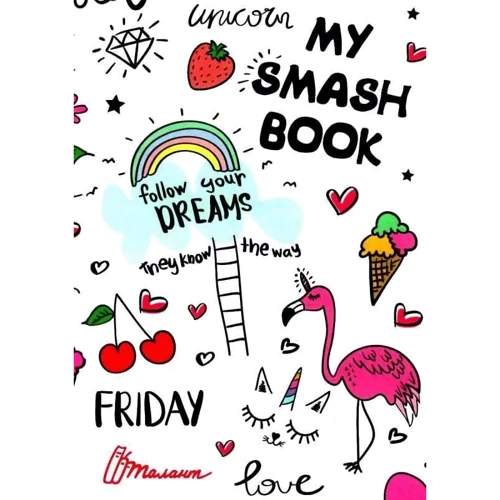 unicorn
MY
SMASH
BOOK
follow your
DREAMS
They know the way
FRIDAY
Талант
love